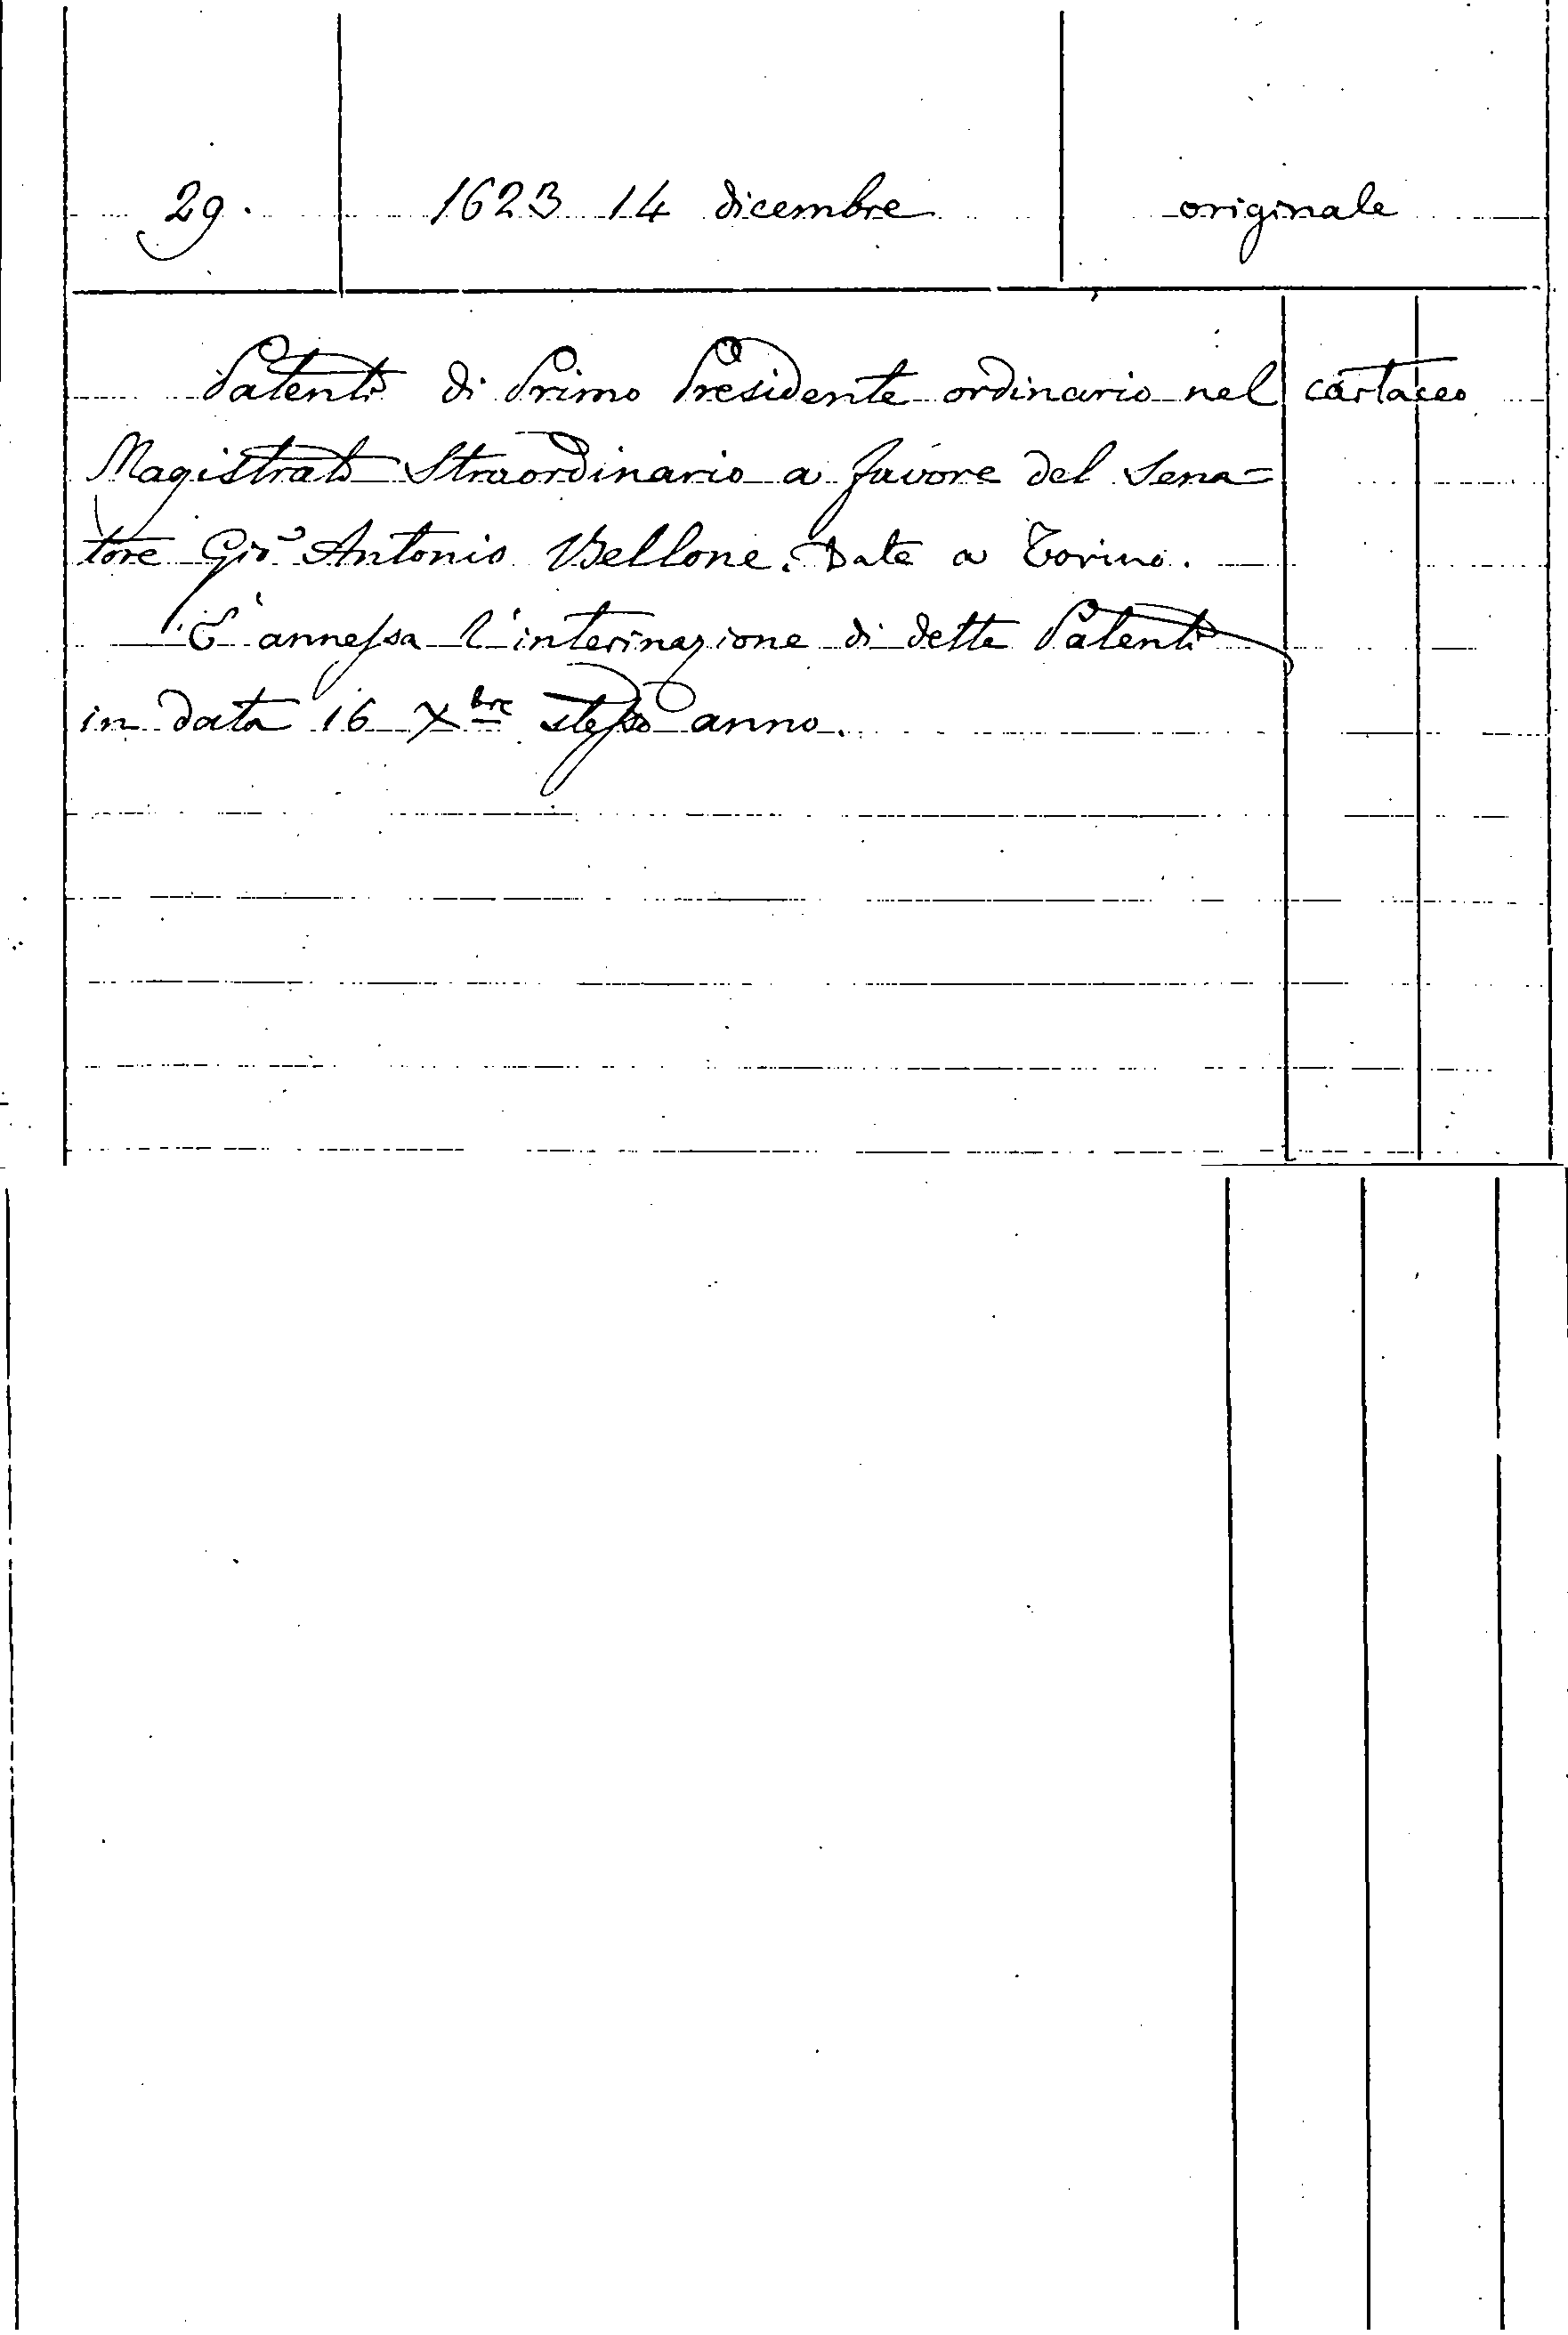 29. 1623 14 dicembre originale
Patenti di Primo Presidente ordinario nel cartaceo
Magistrato Straordinario a favore del Sena=
tore Gio Antonio Bellone. Date a Torino.
È annessa l'interinazione di dette Patenti
in data 16 Xbre stesso anno.